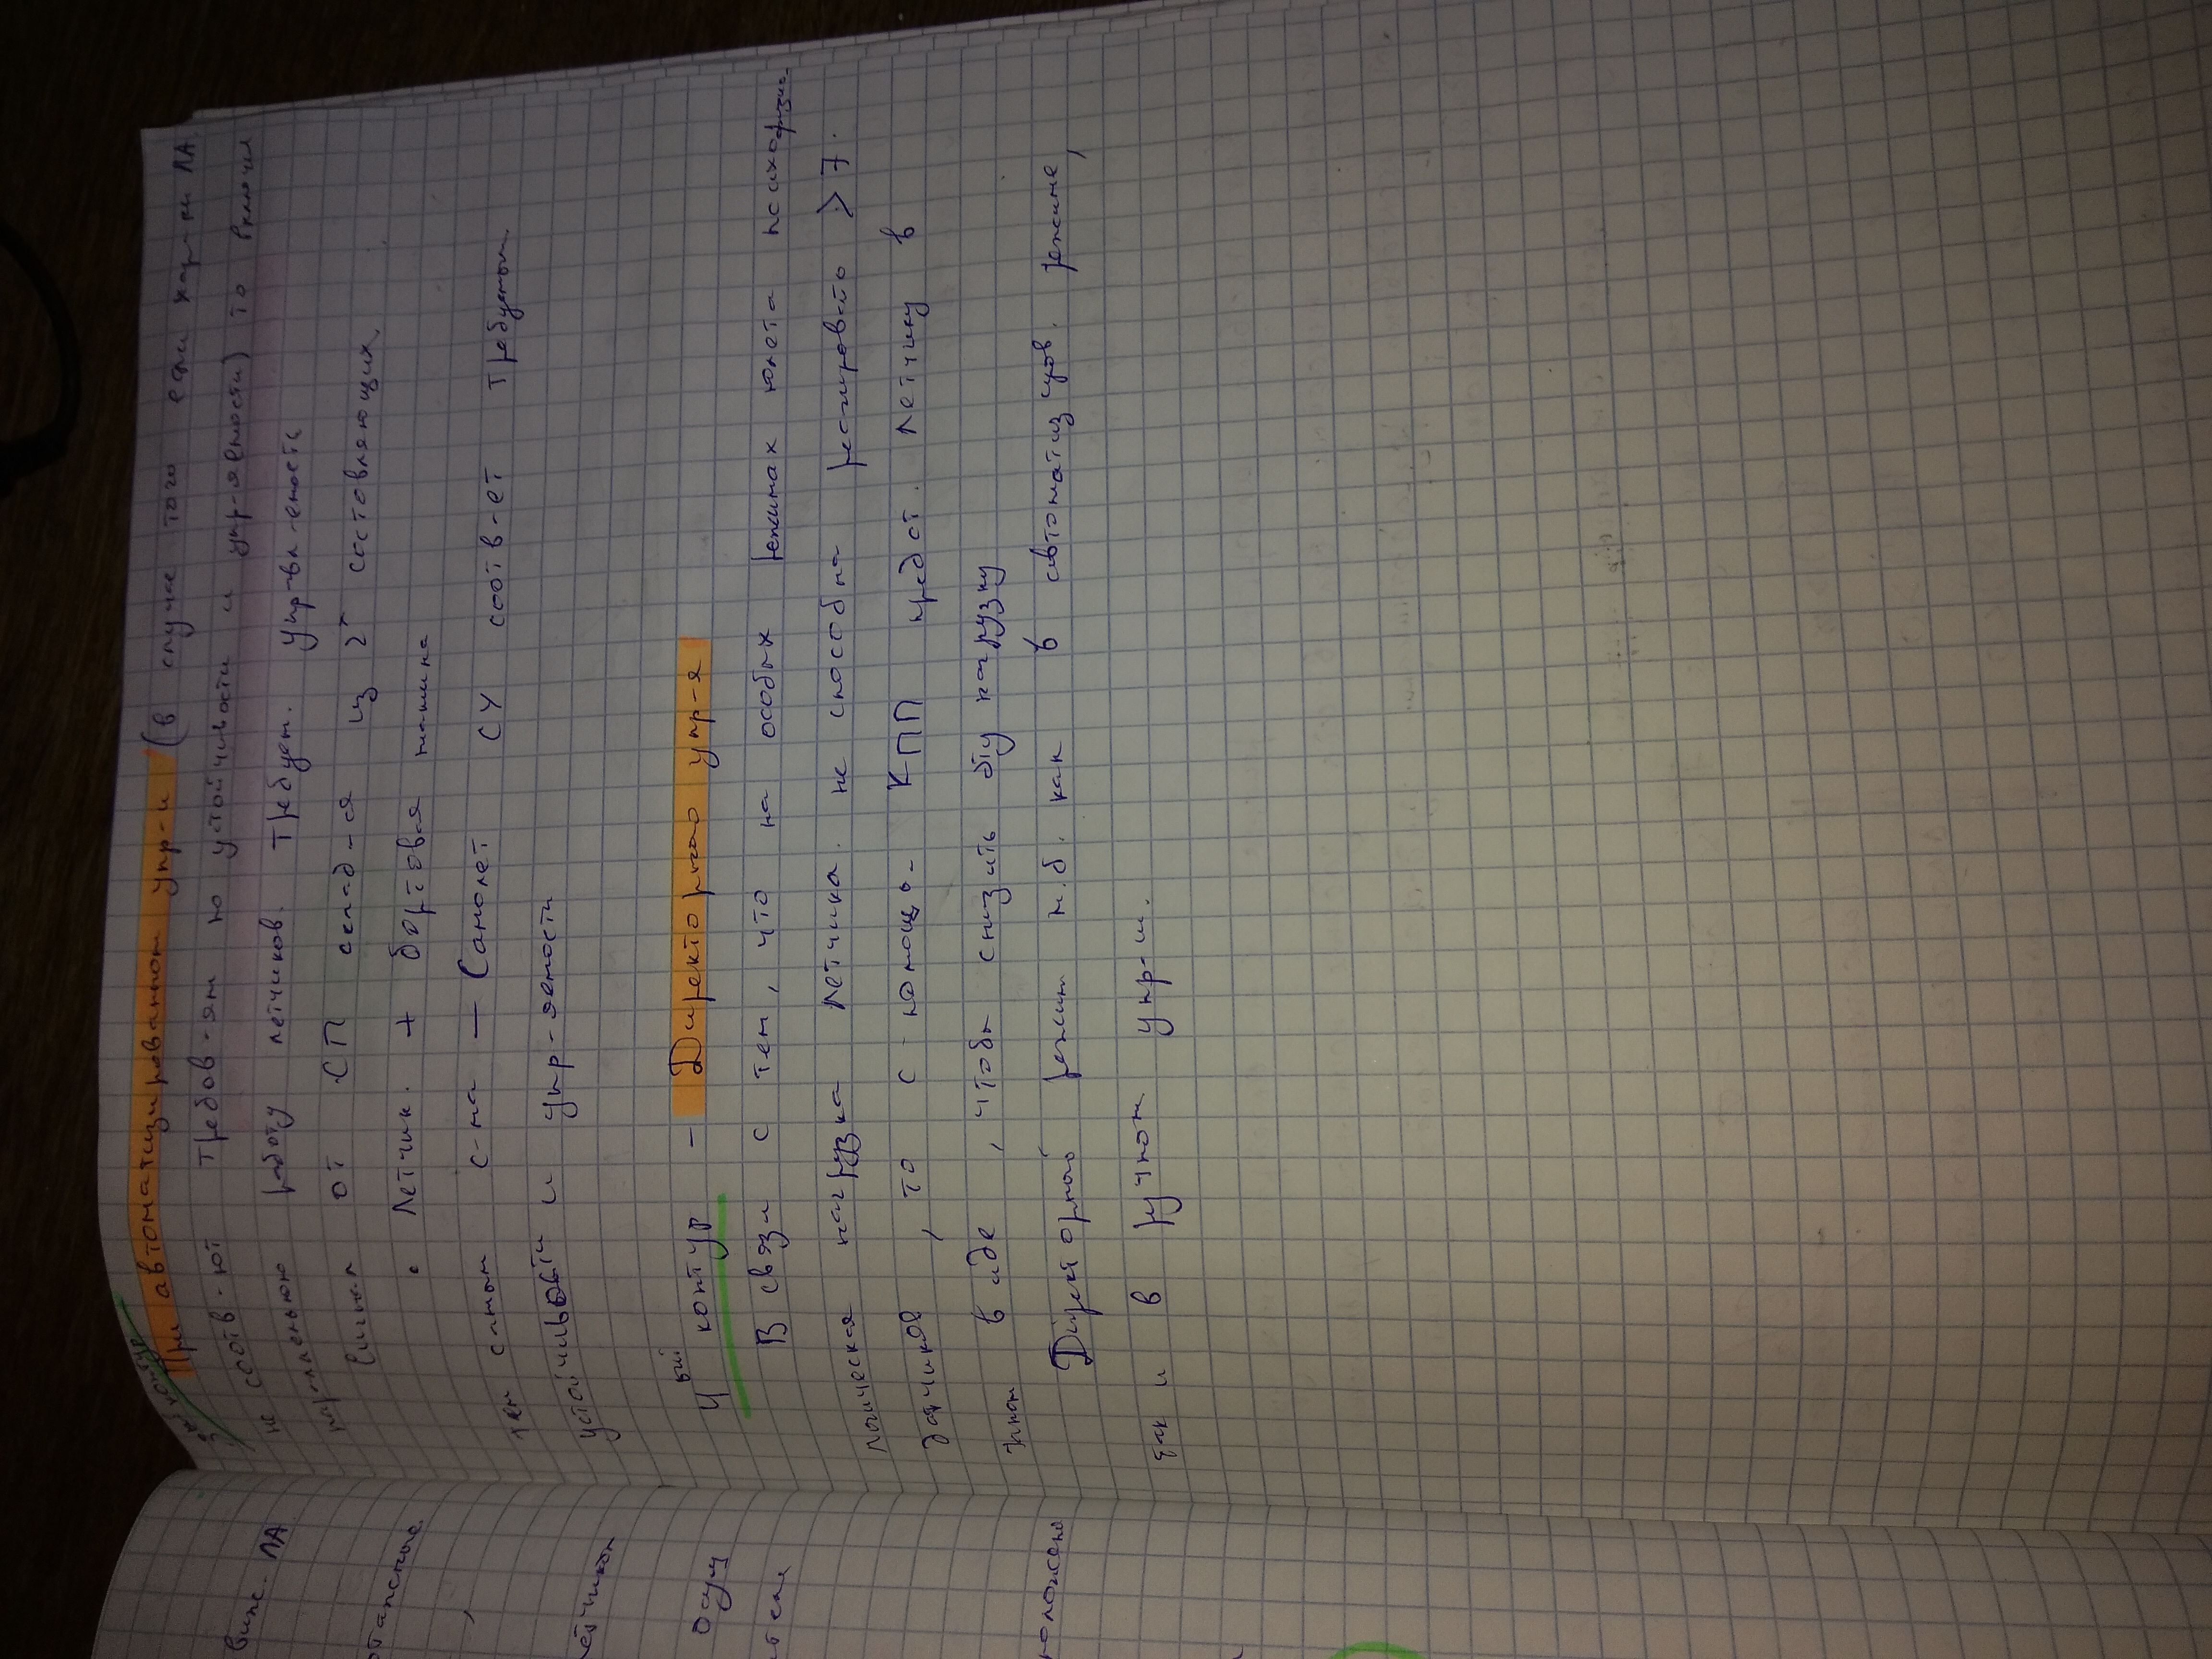 3й контур
При автоматизированном упр-и (в случае того если хар-ки ЛА
не соотв-ют требов-ям по устойчивости и упр-яемости) то включил
работу летчиков. Требует. упр-вл-емость
от СП склад-ся из 2х составляющих.
• Летчик. + бортовая машина
тем самым с-ма — Самолет СУ соотв-ет требуемым
устойчивости и упр-яемости
4ый контур - Директорного упр-я
В связи с тем, что на особых режимах полета психофизио-
логическая нагрузка летчика. не способна реагировать > 7.
датчиков, то с помощь- КПП предст. летчику в
виде, чтобы снизить эту нагрузку
Директорный режим м.б. как в автоматизиров. режиме,
так и в ручном упр-и.
виже. ЛА
летчиком
Осущ
ителя
положено